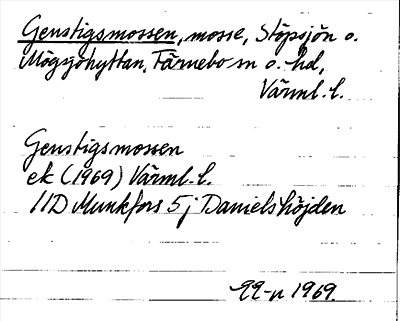 Genstigsmossen, mosse, Stöpsjön o.
Mögsjöhyttan, Färnebo sn o. hd,
Värml. l.
Genstigsmossen
ek (1969) Värml. l.
11D Munkfors 5 j Danielshöjden
1969.